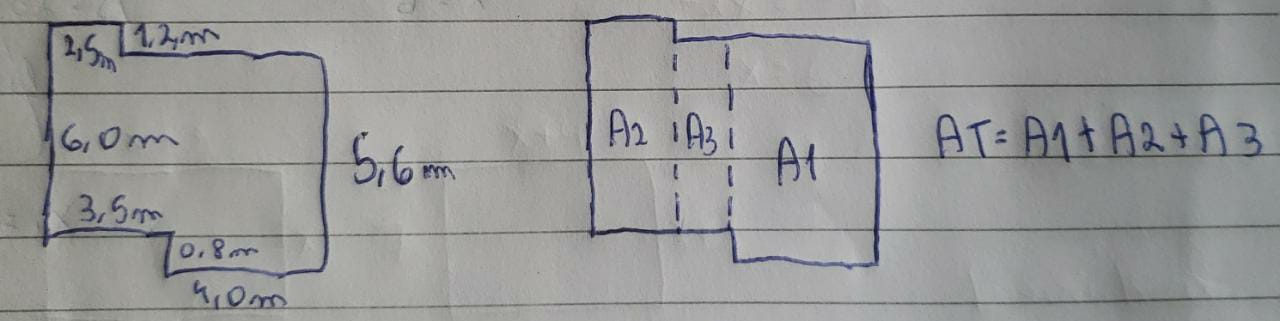 2,5m 1,2m
6,0m
5,6m
3,5m
0,8m
4,0m
A2 A3 A1
AT = A1 + A2 + A3